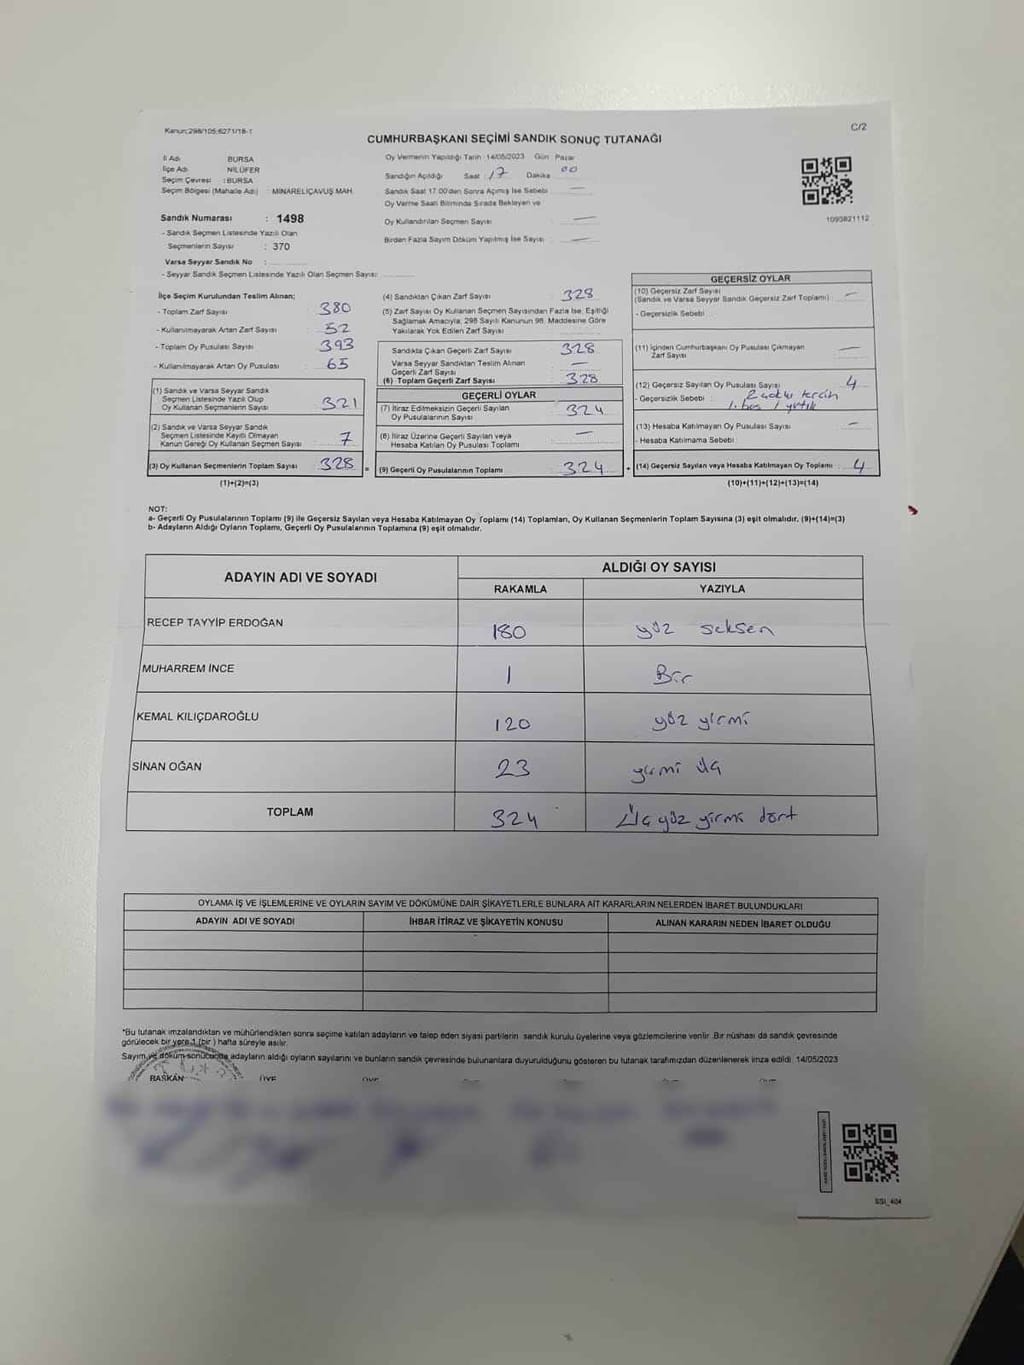 Kanun:298/105;6271/18-1
C/2
CUMHURBAŞKANI SEÇİMİ SANDIK SONUÇ TUTANAĞI
İl Adı : BURSA
İlçe Adı : NİLÜFER
Seçim Çevresi : BURSA
Seçim Bölgesi (Mahalle Adı) : MİNARELİÇAVUŞ MAH.
Sandık Numarası : 1498
- Sandık Seçmen Listesinde Yazılı Olan
Seçmenlerin Sayısı : 370
Varsa Seyyar Sandık No :
- Seyyar Sandık Seçmen Listesinde Yazılı Olan Seçmen Sayısı:
Oy Vermenin Yapıldığı Tarih :14/05/2023 Gün : Pazar
Sandığın Açıldığı Saat : 17 Dakika : 00
Sandık Saat 17.00'den Sonra Açılmış İse Sebebi : —
Oy Verme Saati Bitiminde Sırada Bekleyen ve
Oy Kullandırılan Seçmen Sayısı : —
Birden Fazla Sayım Döküm Yapılmış İse Sayısı : —
1093821112
İlçe Seçim Kurulundan Teslim Alınan;
- Toplam Zarf Sayısı : 380
- Kullanılmayarak Artan Zarf Sayısı : 52
- Toplam Oy Pusulası Sayısı : 393
- Kullanılmayarak Artan Oy Pusulası : 65
(1) Sandık ve Varsa Seyyar Sandık
Seçmen Listesinde Yazılı Olup
Oy Kullanan Seçmenlerin Sayısı : 321
(2) Sandık ve Varsa Seyyar Sandık
Seçmen Listesinde Kayıtlı Olmayan
Kanun Gereği Oy Kullanan Seçmen Sayısı : 7
(3) Oy Kullanan Seçmenlerin Toplam Sayısı : 328
(1)+(2)=(3)
(4) Sandıktan Çıkan Zarf Sayısı : 328
(5) Zarf Sayısı Oy Kullanan Seçmen Sayısından Fazla İse; Eşitliği
Sağlamak Amacıyla; 298 Sayılı Kanunun 98. Maddesine Göre
Yakılarak Yok Edilen Zarf Sayısı :
Sandıkta Çıkan Geçerli Zarf Sayısı : 328
Varsa Seyyar Sandıktan Teslim Alınan
Geçerli Zarf Sayısı : —
(6) Toplam Geçerli Zarf Sayısı : 328
GEÇERLİ OYLAR
(7) İtiraz Edilmeksizin Geçerli Sayılan
Oy Pusulalarının Sayısı : 324
(8) İtiraz Üzerine Geçerli Sayılan veya
Hesaba Katılan Oy Pusulası Toplamı : —
(9) Geçerli Oy Pusulalarının Toplamı : 324
GEÇERSİZ OYLAR
(10) Geçersiz Zarf Sayısı : —
(Sandık ve Varsa Seyyar Sandık Geçersiz Zarf Toplamı)
- Geçersizlik Sebebi :
(11) İçinden Cumhurbaşkanı Oy Pusulası Çıkmayan
Zarf Sayısı : —
(12) Geçersiz Sayılan Oy Pusulası Sayısı : 4
- Geçersizlik Sebebi : 2 tercih
1. boş 1 yırtık
(13) Hesaba Katılmayan Oy Pusulası Sayısı : —
- Hesaba Katılmama Sebebi :
(14) Geçersiz Sayılan veya Hesaba Katılmayan Oy Toplamı : 4
(10)+(11)+(12)+(13)=(14)
NOT:
a- Geçerli Oy Pusulalarının Toplamı (9) ile Geçersiz Sayılan veya Hesaba Katılmayan Oy Toplamı (14) Toplamları, Oy Kullanan Seçmenlerin Toplam Sayısına (3) eşit olmalıdır, (9)+(14)=(3)
b- Adayların Aldığı Oyların Toplamı, Geçerli Oy Pusulalarının Toplamına (9) eşit olmalıdır.
ADAYIN ADI VE SOYADI ALDIĞI OY SAYISI
RAKAMLA YAZIYLA
RECEP TAYYİP ERDOĞAN 180 yüz seksen
MUHARREM İNCE 1 Bir
KEMAL KILIÇDAROĞLU 120 yüz yirmi
SİNAN OĞAN 23 yirmi üç
TOPLAM 324 Üç yüz yirmi dört
OYLAMA İŞ VE İŞLEMLERİNE VE OYLARIN SAYIM VE DÖKÜMÜNE DAİR ŞİKAYETLERLE BUNLARA AİT KARARLARIN NELERDEN İBARET BULUNDUKLARI
ADAYIN ADI VE SOYADI İHBAR İTİRAZ VE ŞİKAYETİN KONUSU ALINAN KARARIN NEDEN İBARET OLDUĞU
*Bu tutanak imzalandıktan ve mühürlendikten sonra seçime katılan adayların ve talep eden siyasi partilerin sandık kurulu üyelerine veya gözlemcilerine verilir. Bir nüshası da sandık çevresinde
görülecek bir yere 1 (bir ) hafta süreyle asılır.
Sayım ve döküm sonucunda adayların aldığı oyların sayılarını ve bunların sandık çevresinde bulunanlara duyurulduğunu gösteren bu tutanak tarafımızdan düzenlenerek imza edildi. 14/05/2023
BAŞKAN ÜYE ÜYE ÜYE ÜYE ÜYE
SSI_404